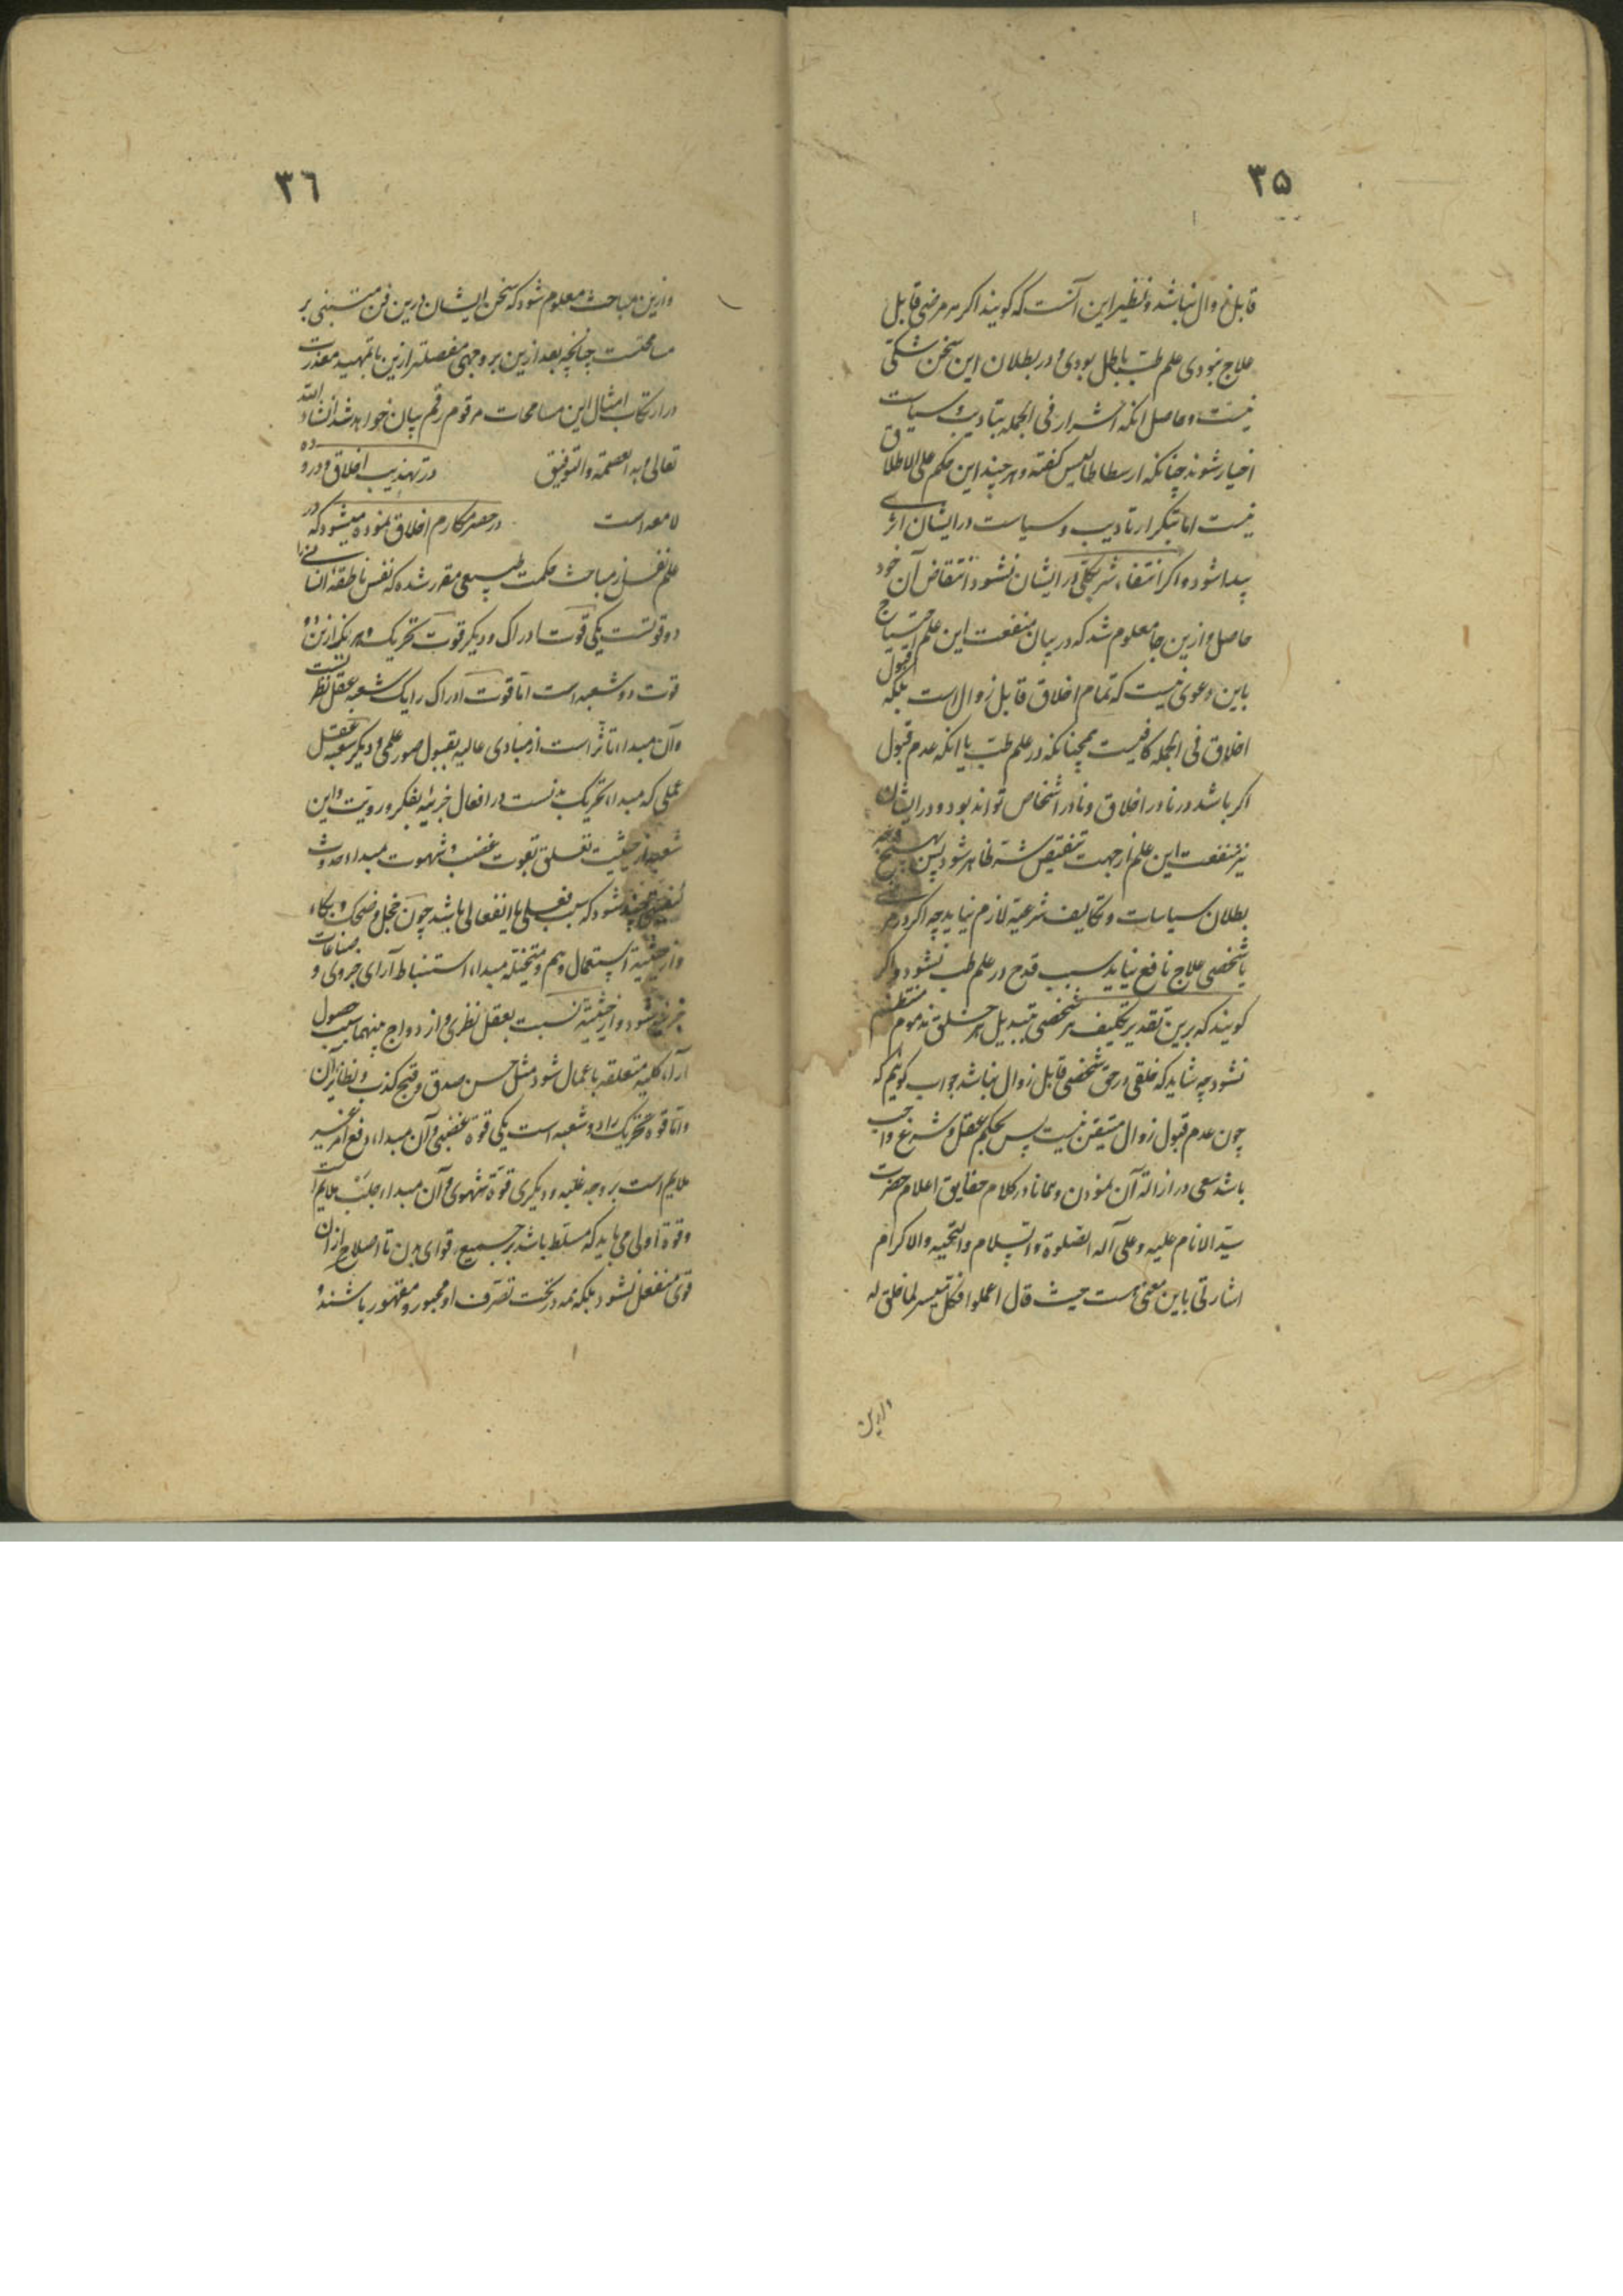 ۳۵
قابل زوال نباشد و نظیر این آنست که کویند اکر هر مرضی قابل
علاج نبودی علم طب باطل بودی و در بطلان این سخن شکی
نیست و حاصل انکه اشرار فی الجمله بتادیب و سیاست
اخیار شوند چنانکه ارسطاطالیس کفته و هر چند این حکم علی الاطلاق
نیست اما بتکرار تادیب و سیاست در ایشان اثری
پیدا شود و اکر انتفاء شر بکلی در ایشان نشود انتقاض آن خود
حاصل و ازین جا معلوم شد که در بیان منفعت این علم احتیاج
باین دعوی نیست که تمام اخلاق قابل زوال است بلکه قبول
اخلاق فی الجمله کافیست همچنانکه در علم طب با انکه عدم قبول
اکر باشد در نادر اخلاق و نادر اشخاص تواند بود و در ایشان
نیز منفعت این علم از جهت تنقیص شر ظاهر شود پس بهیچ وجه
بطلان سیاسات و تکالیف شرعیه لازم نیاید چه اکر در مرضی
یا شخصی علاج نافع نیاید سبب قدح در علم طب نشود و اکر
کویند که برین تقدیر تکلیف هر شخصی بتبدیل هر خلق مذموم منتظم
نشود چه شاید که خلقی در حق شخصی قابل زوال نباشد جواب کوئیم که
چون عدم قبول زوال متیقن نیست پس بحکم عقل و شرع واجب
باشد سعی در ازاله آن نمودن و همانا در کلام حقایق اعلام حضرت
سید الانام علیه و علی آله الصلوة و السلام و التحیه و الاکرام
اشارتی باین معنی هست حیث قال اعملوا فکل میسر لما خلق له
وازین
۳٦
وازین مباحث معلوم شود که سخن ایشان درین فن مبتنی بر
مسامحتست چنانچه بعد ازین بر وجهی مفصلتر ازین با تمهید معذرت
در ارتکاب امثال این مسامحات مرقوم رقم بیان خواهد شد انشاء الله
تعالی و به العصمة و التوفیق در تهذیب اخلاق و درو ده
لامعه است در حصر مکارم اخلاق نموده میشود که در
علم نفس از مباحث حکمت طبیعی مقرر شده که نفس ناطقه انسانی را
دو قوتست یکی قوت ادراک و دیکر قوت تحریک و هر یک ازین دو
قوت دو شعبه است اما قوت ادراک را یک شعبه عقل نظریست
و آن مبداء تاثر است از مبادی عالیه بقبول صور علمی و دیکر شعبه عقل
عملی که مبداء تحریک بدنست در افعال جزئیه بفکر و رویت و این
شعبه از حیثیت تعلق بقوت غضب و شهوت مبداء حدوث
کیفیتی چند شود که سبب فعلی یا انفعالی باشد چون خجل و ضحک و بکاء
و از حیثیة استعمال وهم و متخیله مبداء استنباط آرای جزوی و صناعات
جزئی شود و از حیثیة نسبت بعقل نظری و ازدواج بینهما سبب حصول
آراء کلیه متعلقه باعمال شود مثل حسن صدق و قبح کذب و نظایر آن
و اما قوه تحریک را دو شعبه است یکی قوة غضبی و آن مبداء دفع امر غیر
ملایم است بر وجه غلبه و دیکری قوة شهوی و آن مبداء جلب ملایم است
و قوة اولی می باید که مسلط باشد بر جمیع قوای بدن تا اصلاح از آن
قوی منفعل نشود بلکه همه در تحت تصرف او مجبور و مقهور باشند و